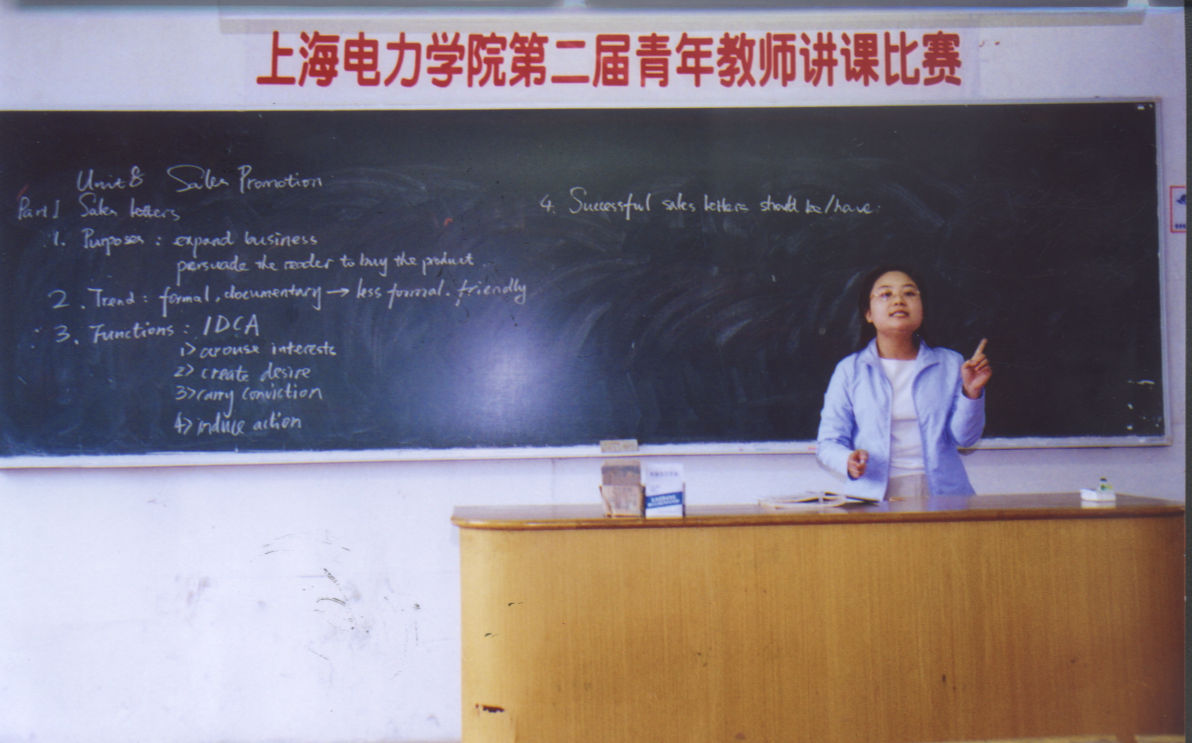 上海电力学院第二届青年教师讲课比赛
Unit 8 Sales Promotion
Part I Sales letters
1. Purposes : expand business
persuade the reader to buy the product
2. Trend : formal, documentary → less formal. friendly
3. Functions : IDCA
1> arouse interests
2> create desire
3> carry conviction
4> induce action
4. Successful sales letters should be/have: